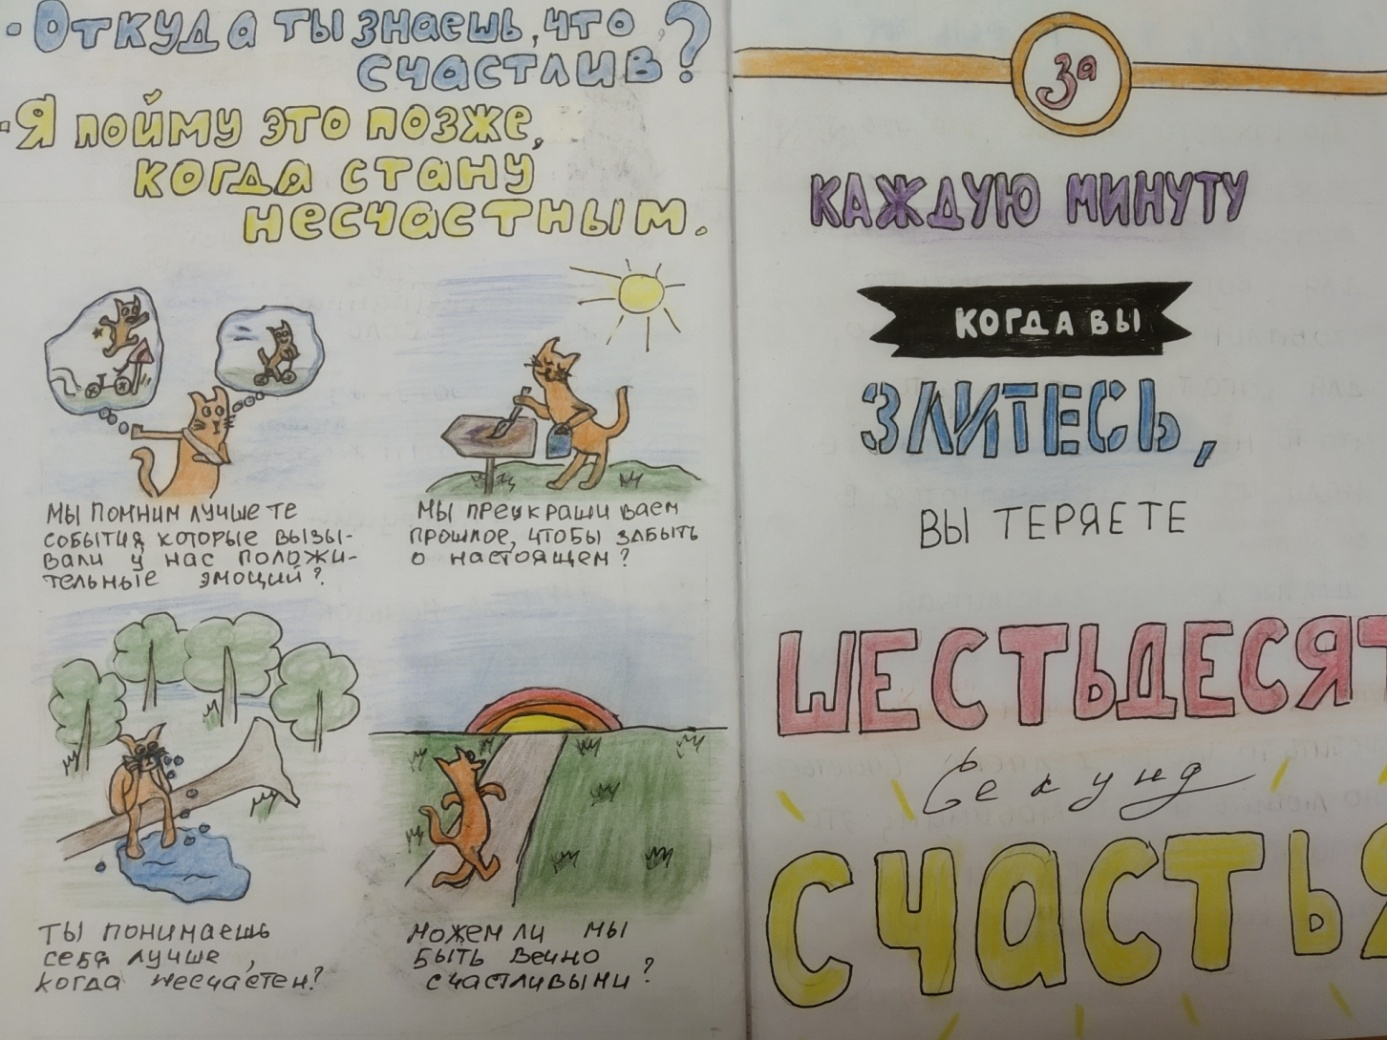 - Откуда ты знаешь, что
счастлив?
- Я пойму это позже,
когда стану
несчастным.
Мы помним лучше те
события, которые вызы-
вали у нас положи-
тельные эмоций?
Мы преукрашиваем
прошлое, чтобы забыть
о настоящем?
Ты понимаешь
себя лучше,
когда несчастен?
Можем ли мы
быть вечно
счастливыми?
За
КАЖДУЮ МИНУТУ
КОГДА ВЫ
ЗЛИТЕСЬ,
ВЫ ТЕРЯЕТЕ
ШЕСТЬДЕСЯТ
секунд
СЧАСТЬЯ